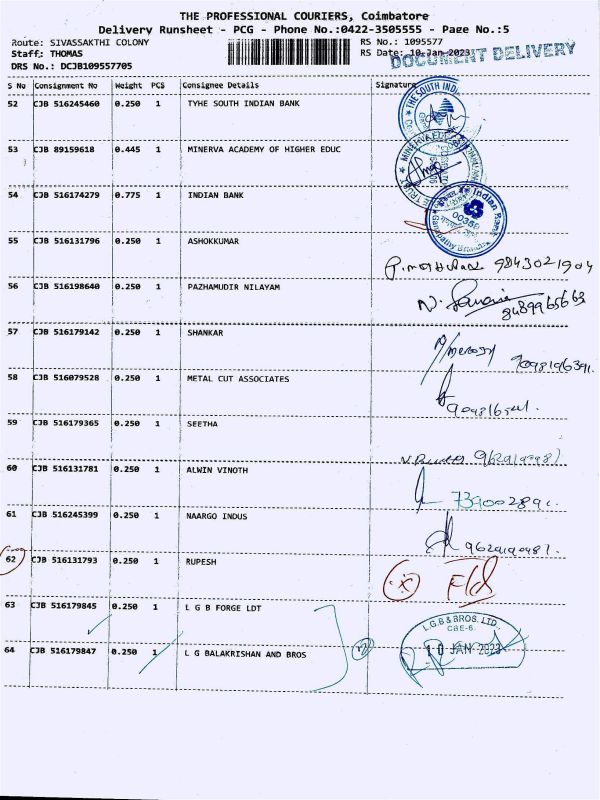 THE PROFESSIONAL COURIERS, Coimbatore
Delivery Runsheet - PCG - Phone No.:0422-3505555 - Page No.:5
Route: SIVASSAKTHI COLONY RS No.: 1095577
Staff: THOMAS RS Date: 10-Jan-2023
DOCUMENT DELIVERY
DRS No.: DCJB109557705
S No Consignment No Weight PCS Consignee Details Signature
52 CJB 516245460 0.250 1 TYHE SOUTH INDIAN BANK
THE SOUTH INDI
53 CJB 89159618 0.445 1 MINERVA ACADEMY OF HIGHER EDUC
54 CJB 516174279 0.775 1 INDIAN BANK
Indian Bank
55 CJB 516131796 0.250 1 ASHOKKUMAR
9843021904
56 CJB 516198640 0.250 1 PAZHAMUDIR NILAYAM
8489965663
57 CJB 516179142 0.250 1 SHANKAR
58 CJB 516079528 0.250 1 METAL CUT ASSOCIATES
59 CJB 516179365 0.250 1 SEETHA
60 CJB 516131781 0.250 1 ALWIN VINOTH
61 CJB 516245399 0.250 1 NAARGO INDUS
62 CJB 516131793 0.250 1 RUPESH
63 CJB 516179845 0.250 1 L G B FORGE LDT
L.G.B & BROS. LTD.,
CBE-6.
64 CJB 516179847 0.250 1 L G BALAKRISHAN AND BROS
10 JAN 2023